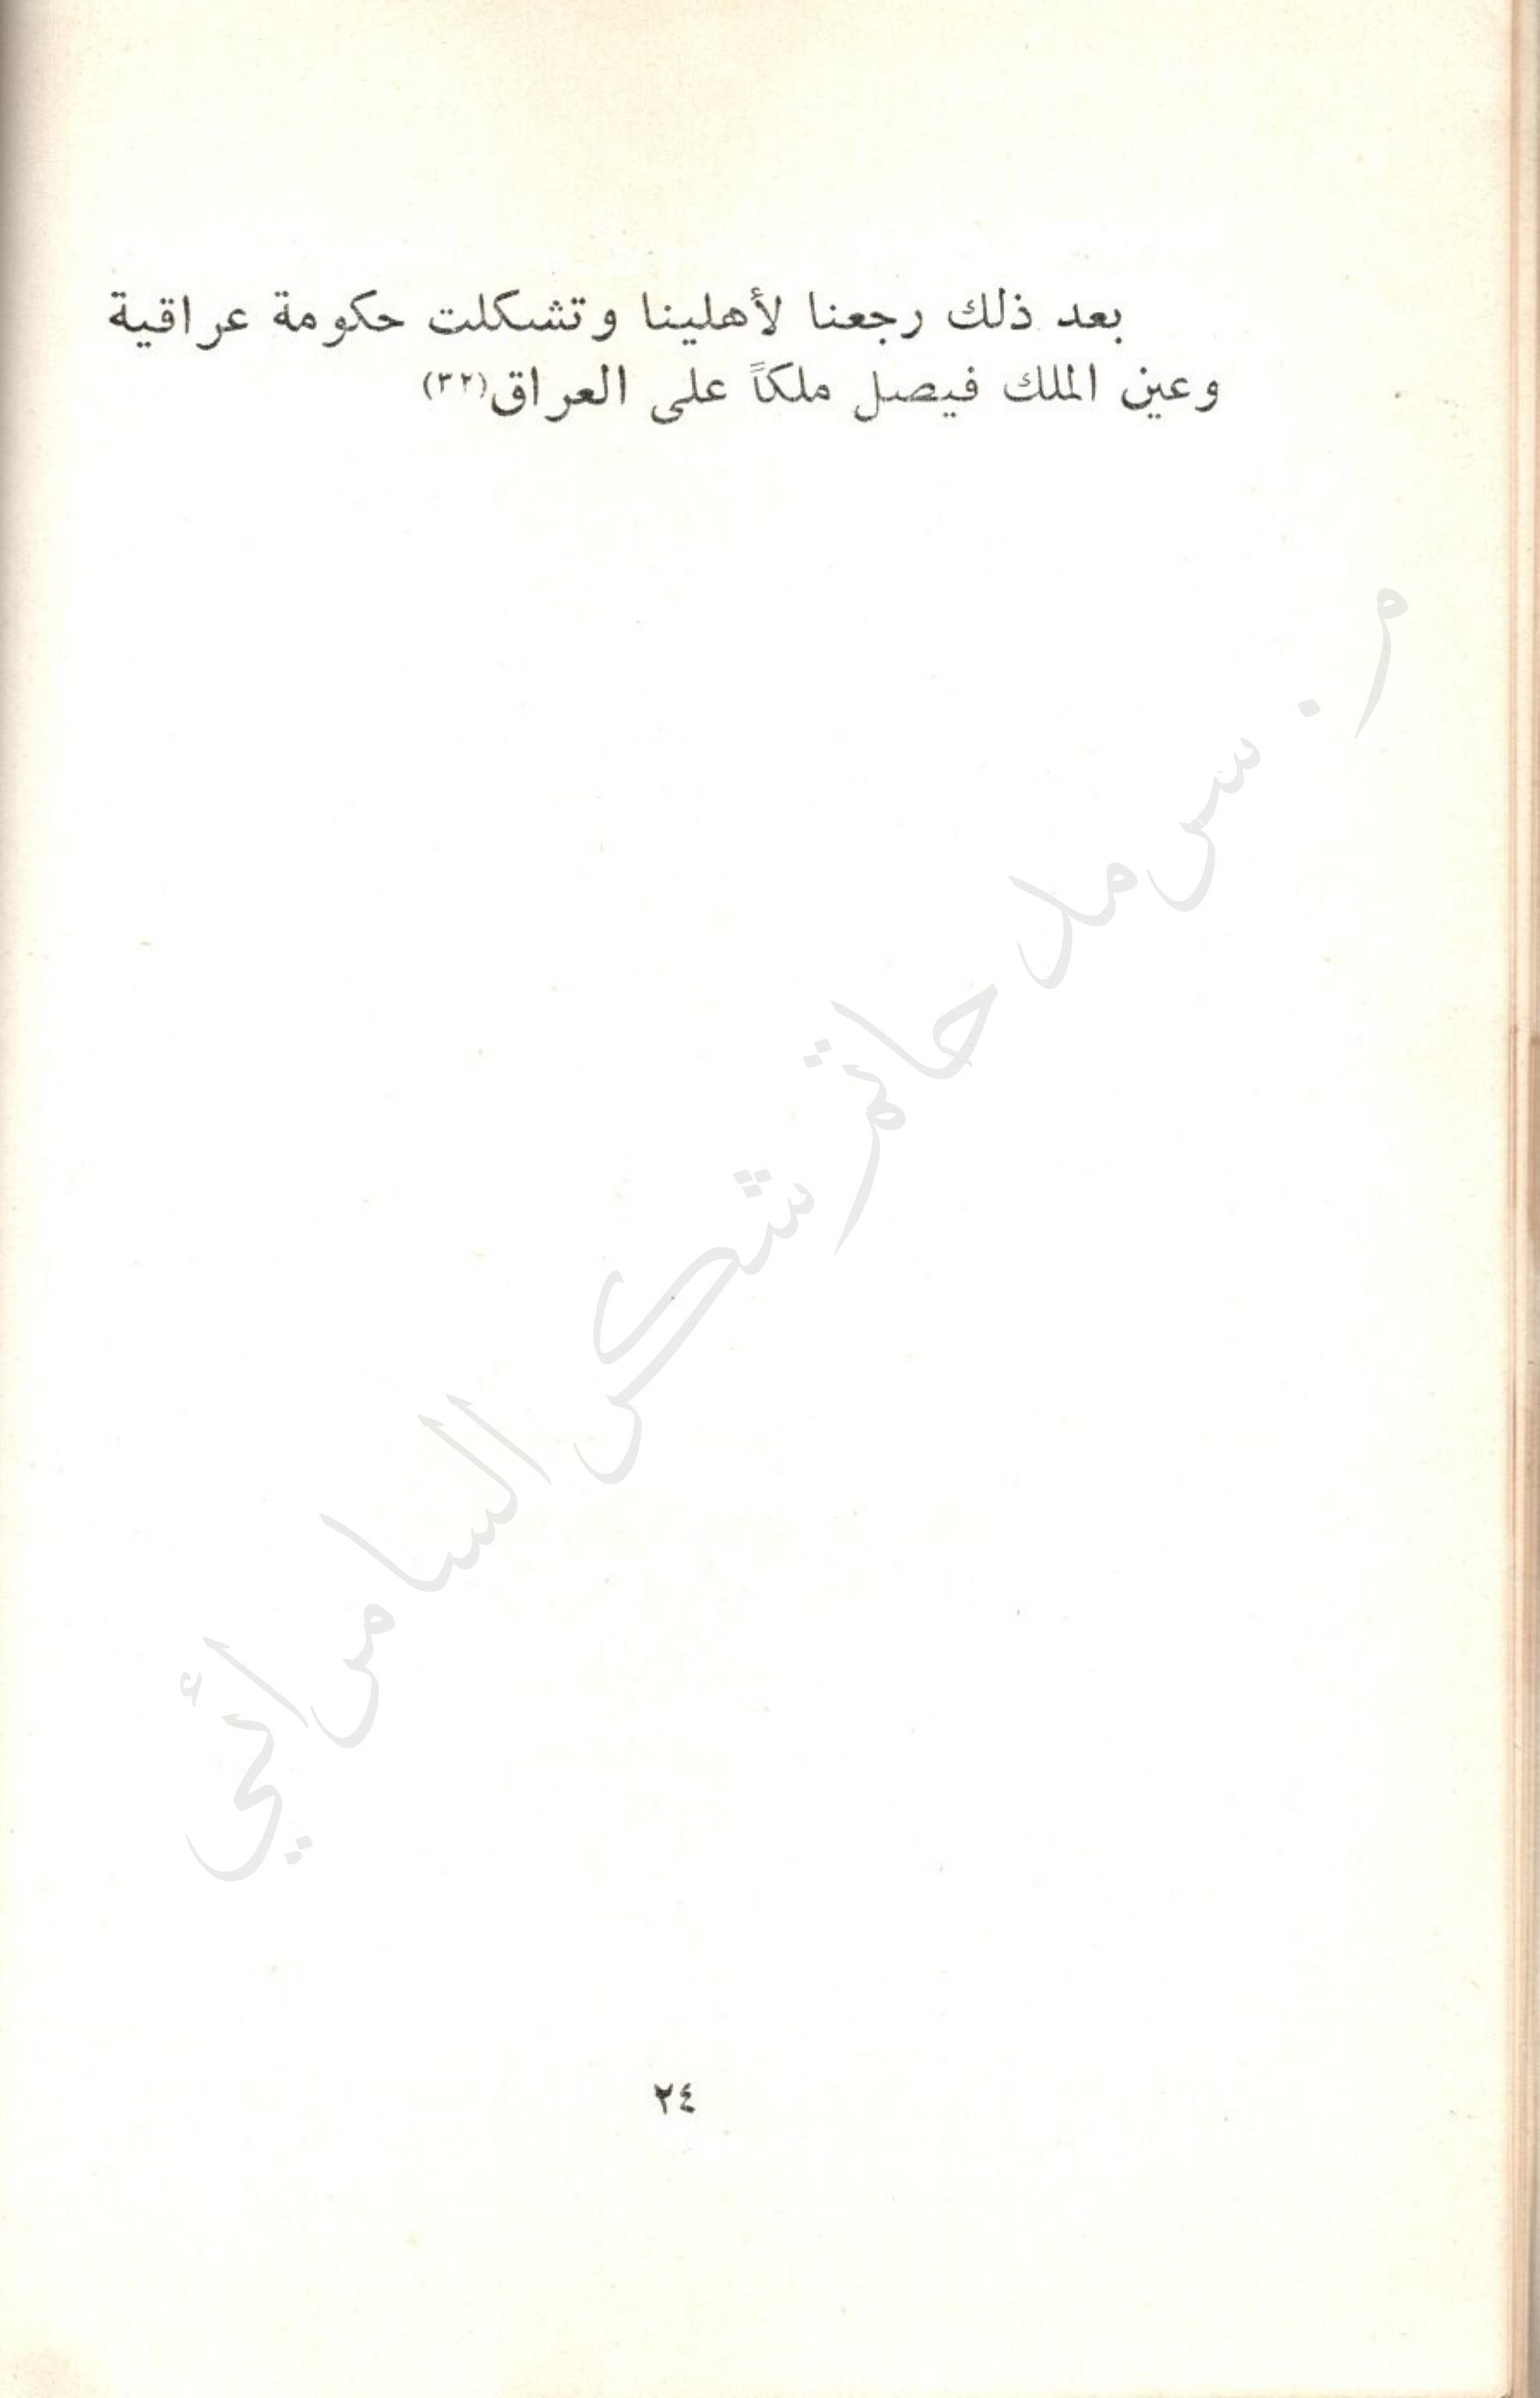 بعد ذلك رجعنا لأهلينا وتشكلت حكومة عراقية
وعين الملك فيصل ملكاً على العراق(٣٢)
م. سرمد حاتم شكر السامرائي
٢٤